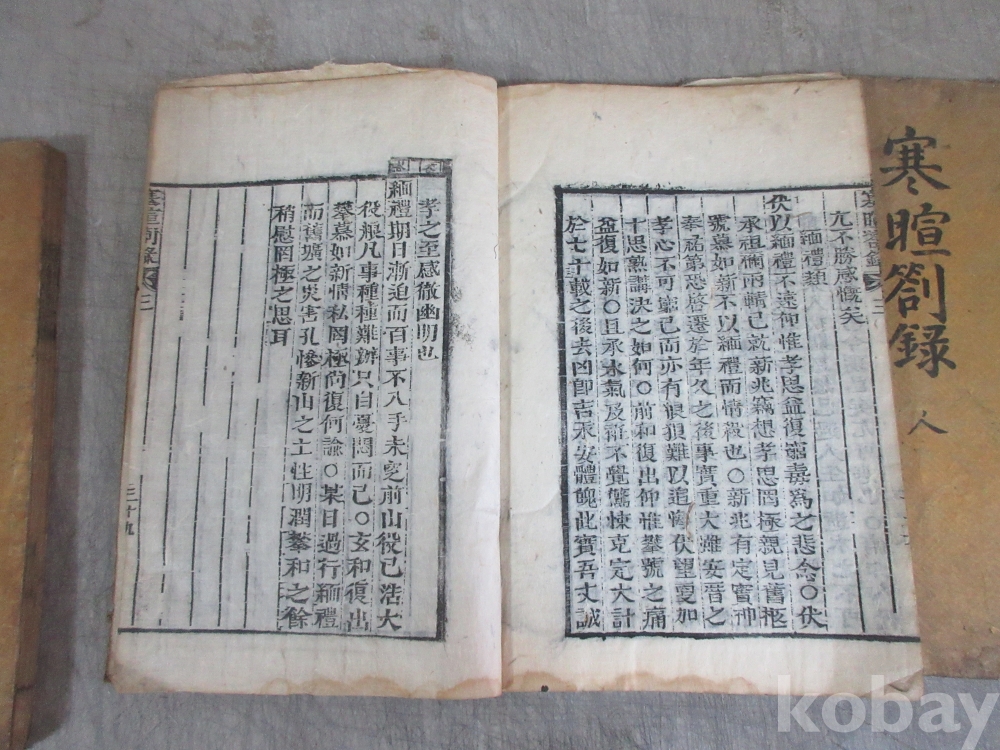 寒暄劄錄
人
亢不勝感慨矣
緬禮類
伏以緬禮不遠仰惟孝思益復窮毒爲之悲念○伏
承祖禰兩輤已就新兆竊想孝思罔極親見舊柩
號慕如新不以緬禮而情殺也○新兆有定實神
奉祐第恐啓遷於年久之後事實重大雖安厝之
孝心不可窮已而亦有狼狽難以追悔伏望更加
十思熟講決之如何○前和復出仰惟攀號之痛
益復如新○且承水氣及罐不覺驚悚克定大計
於七十載之後去凶卽吉永安體魄此實吾丈誠
孝之至感徹幽明也
緬禮期日漸迫而百事不入手未定前山役已浩大
役艱凡事種種難辦只自憂悶而已○玄和復出
攀慕如新情私罔極尙復何諭○某日過行緬禮
而舊壙之災害孔慘新山之土性明潤攀和之餘
稍慰罔極之思耳
三
三十九
kobay